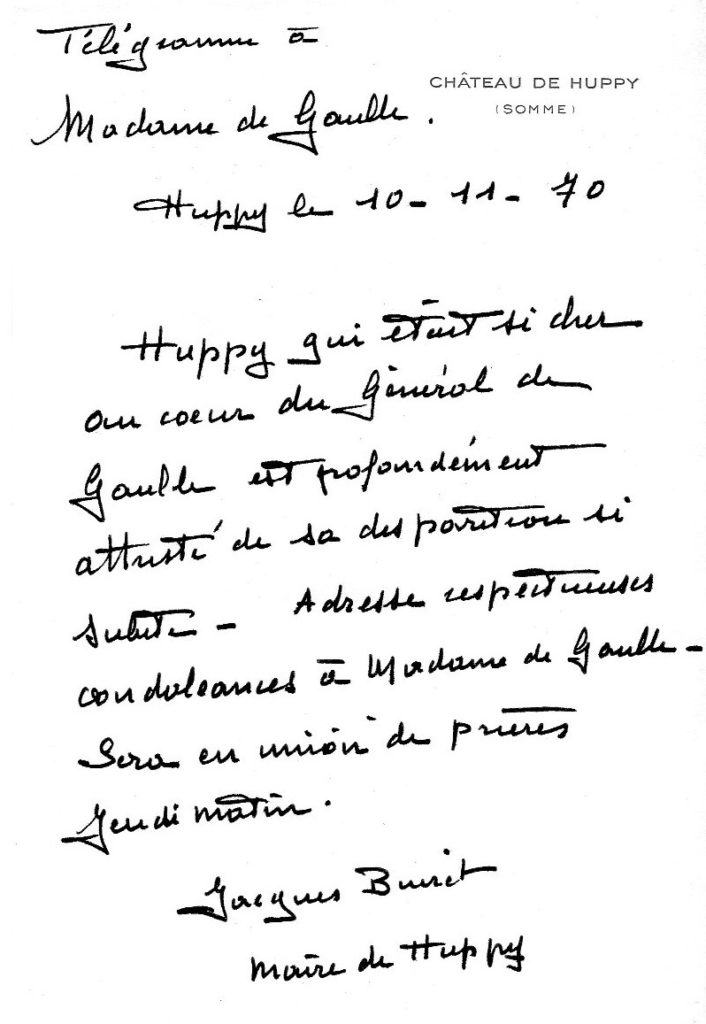 Télégramme à
CHÂTEAU DE HUPPY
(SOMME)
Madame de Gaulle.
Huppy le 10-11-70
Huppy qui était si cher
au coeur du Général de
Gaulle est profondément
attristé de sa disparition si
subite - Adresse respectueuses
condoléances à Madame de Gaulle -
Sera en union de prières
Jeudi matin.
Jacques Buiret
Maire de Huppy